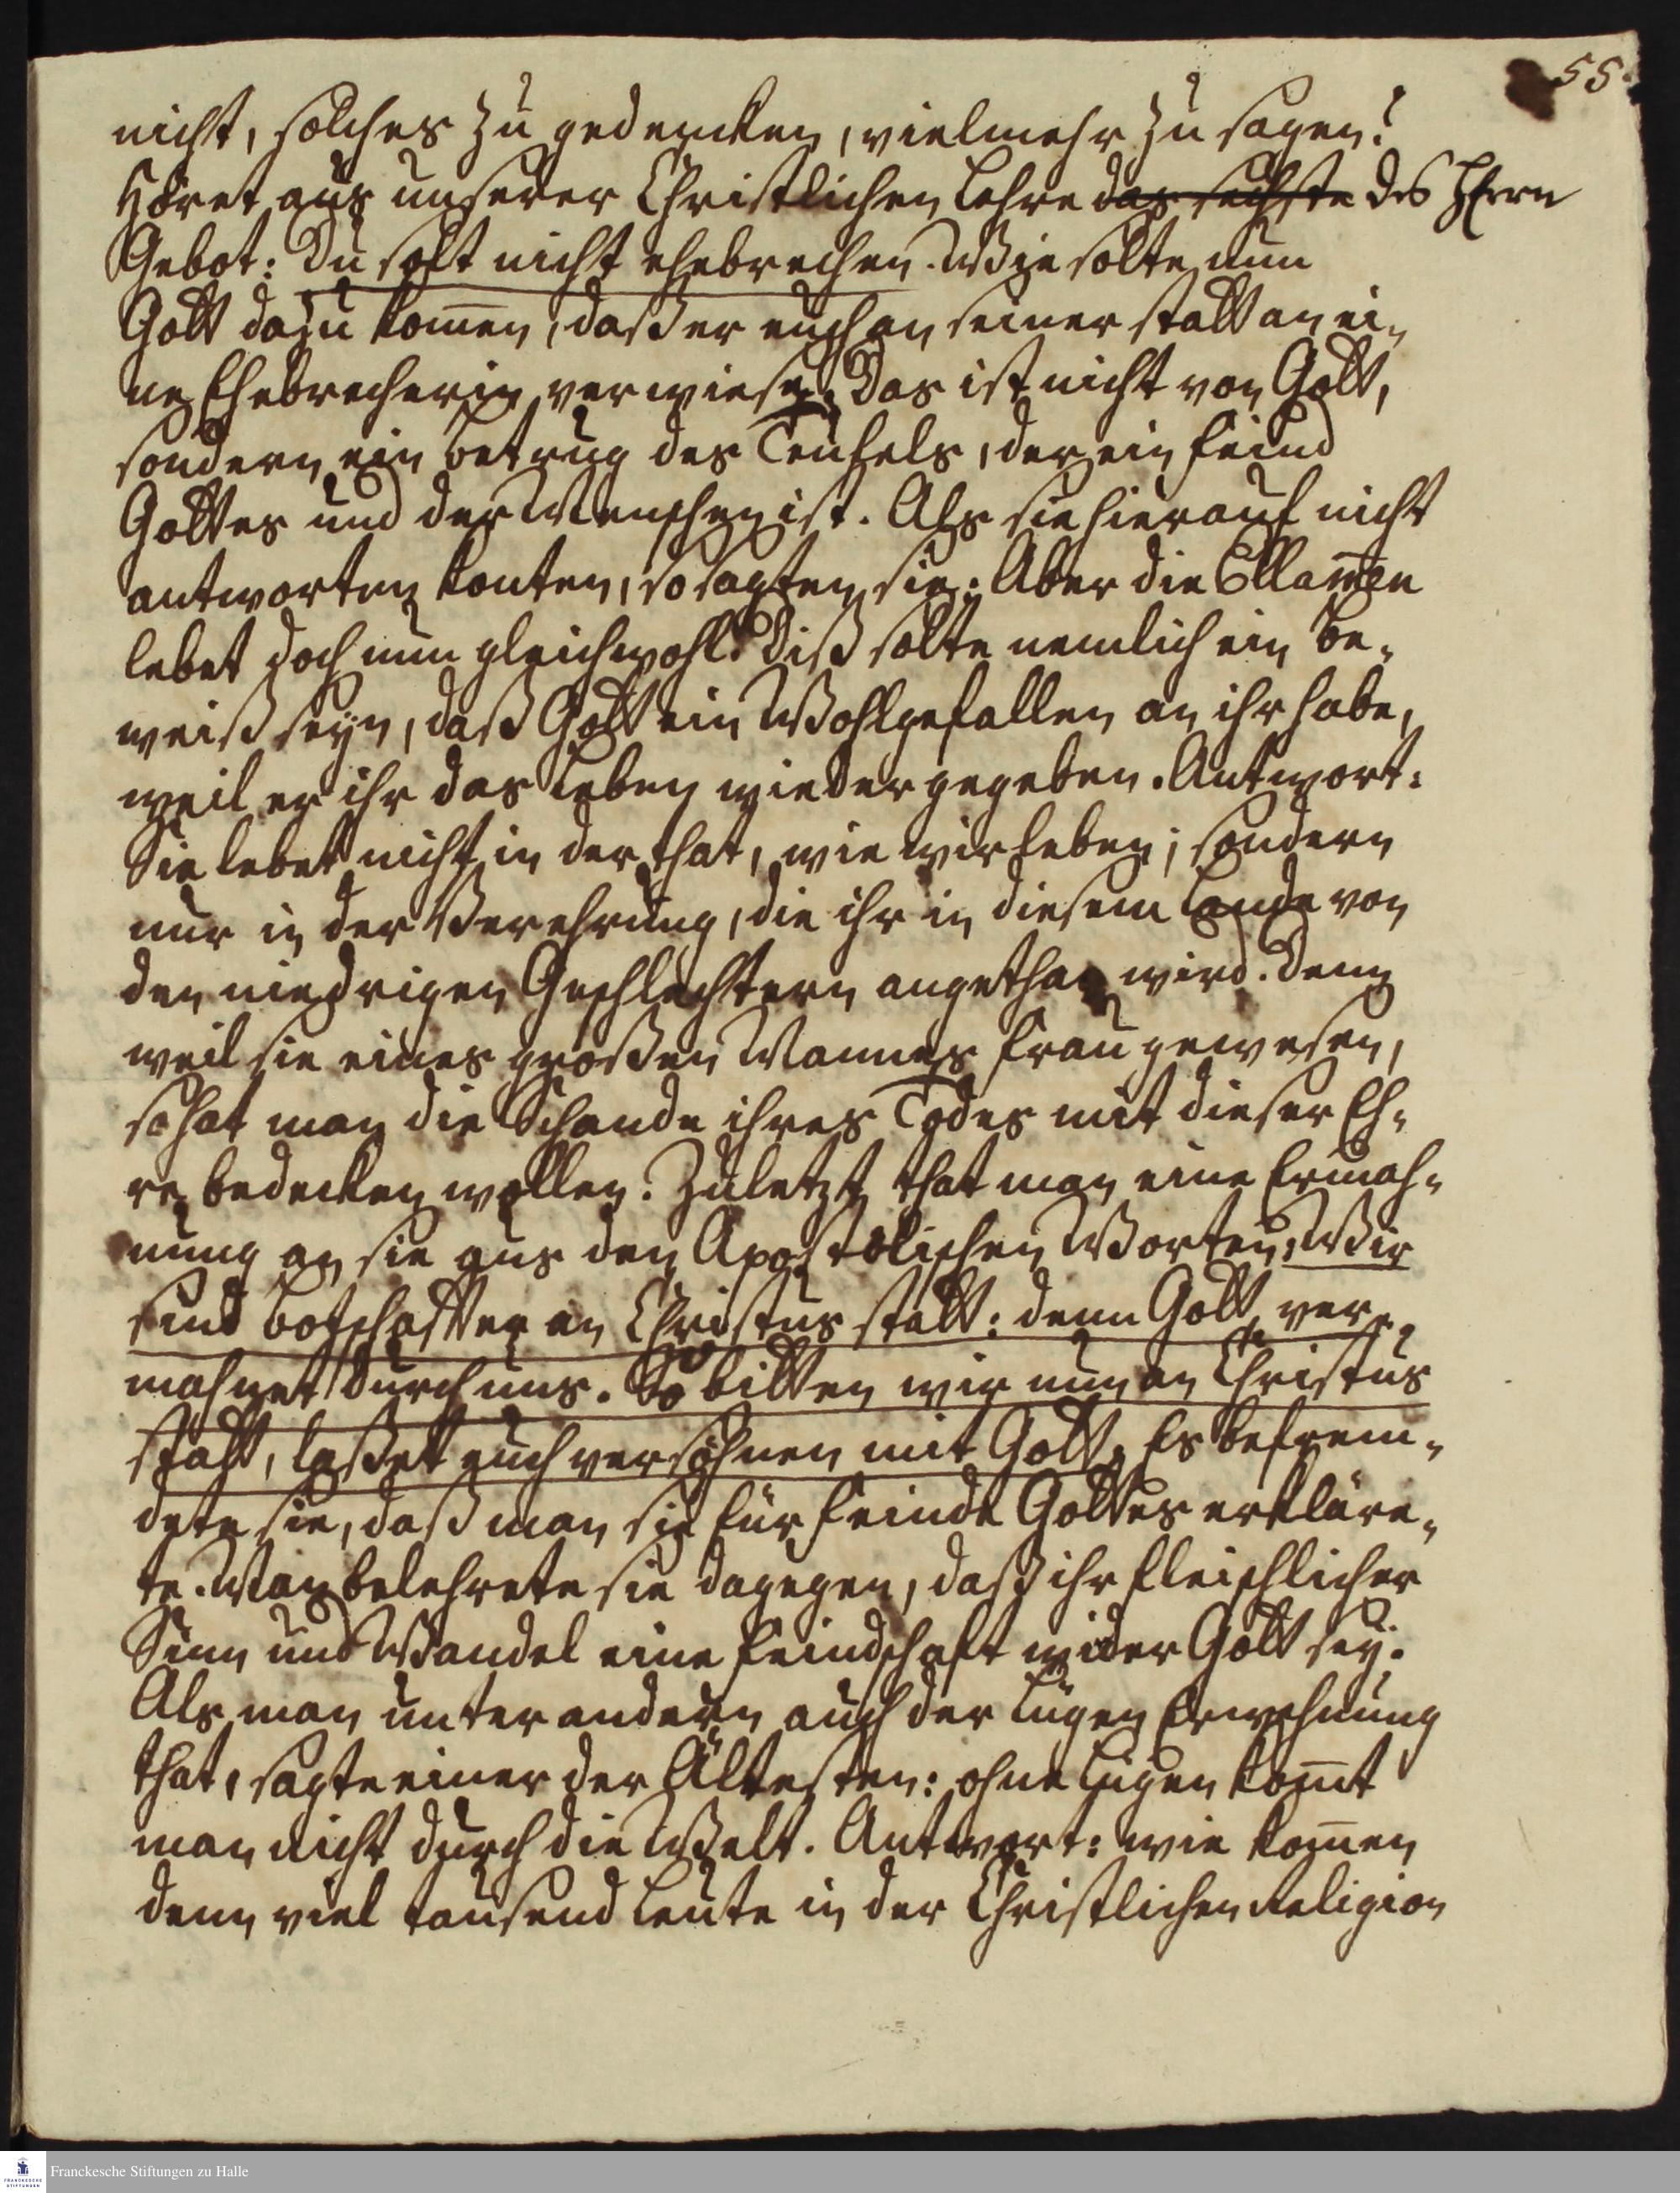 55.
nicht, solches zu gedencken, vielmehr zu sagen?
Höret aus unserer Christlichen Lehre das sechste des HErrn
Gebot: Du solt nicht ehebrechen. Wie solte nun
Gott dazu kom̄en, daß er euch an seiner statt an ei-
ne Ehebrecherin verwiese? Das ist nicht von Gott,
sondern ein Betrug des Teufels, der ein Feind
Gottes und der Menschen ist. Als sie hierauf nicht
antworten konten, so sagten sie: Aber die Ellam̄en
lebet doch nun gleichwohl. Diß solte nemlich ein Be-
weiß seyn, daß Gott ein Wohlgefallen an ihr habe,
weil er ihr das Leben wieder gegeben. Antwort:
Sie lebet nicht in der that, wie wir leben; sondern
nur in der Verehrung, die ihr in diesem Lande von
den niedrigen Geschlechtern angethan wird. Denn
weil sie eines großen Mannes Frau gewesen,
so hat man die Schande ihres Todes mit dieser Eh-
re bedecken wollen. Zuletzt that man eine Ermah-
nung an sie aus den Apostolischen Worten: Wir
sind Botschafter an Christus statt: denn Gott ver-
mahnet durch uns. So bitten wir nun an Christus
statt, laßet euch versöhnen mit Gott. Es befrem-
dete sie, daß man sie für Feinde Gottes erkläre-
te. Man belehrete sie dagegen, daß ihr fleischlicher
Sinn und Wandel eine Feindschaft wider Gott sey.
Als man unter andern auch der Lügen Erwehnung
that, sagte einer der Ältesten: ohne Lügen kom̄t
man nicht durch die Welt. Antwort: wie kom̄en
denn viel tausend Leute in der Christlichen Religion
Franckesche Stiftungen zu Halle
FRANCKESCHE
STIFTUNGEN